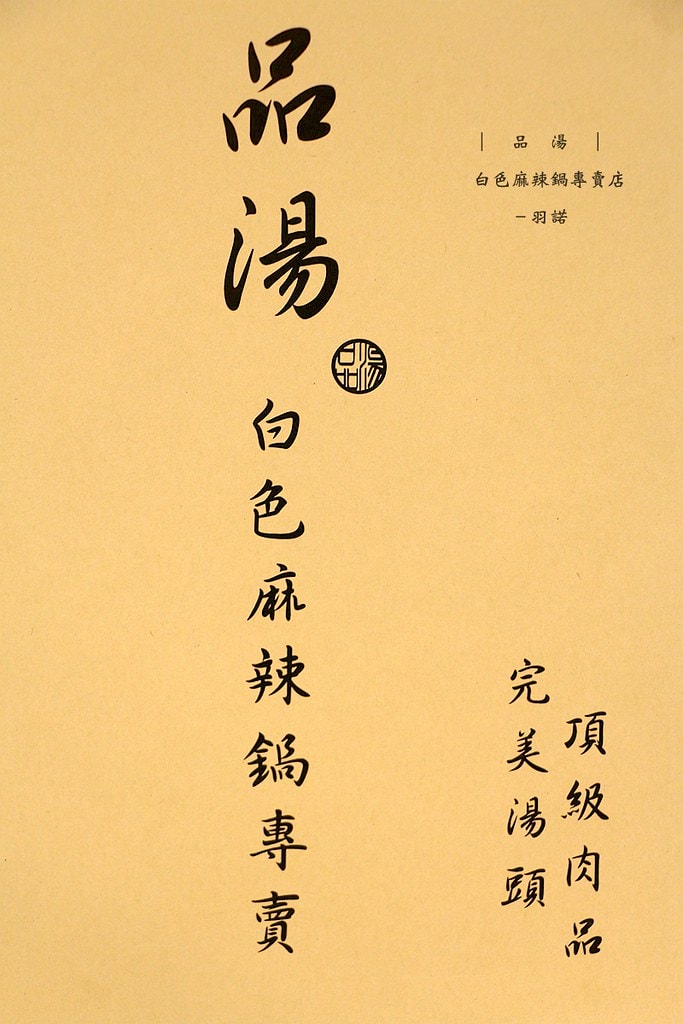 品湯
品湯
白色麻辣鍋專賣
｜ 品 湯 ｜
白色麻辣鍋專賣店
－羽諾
頂級肉品
完美湯頭